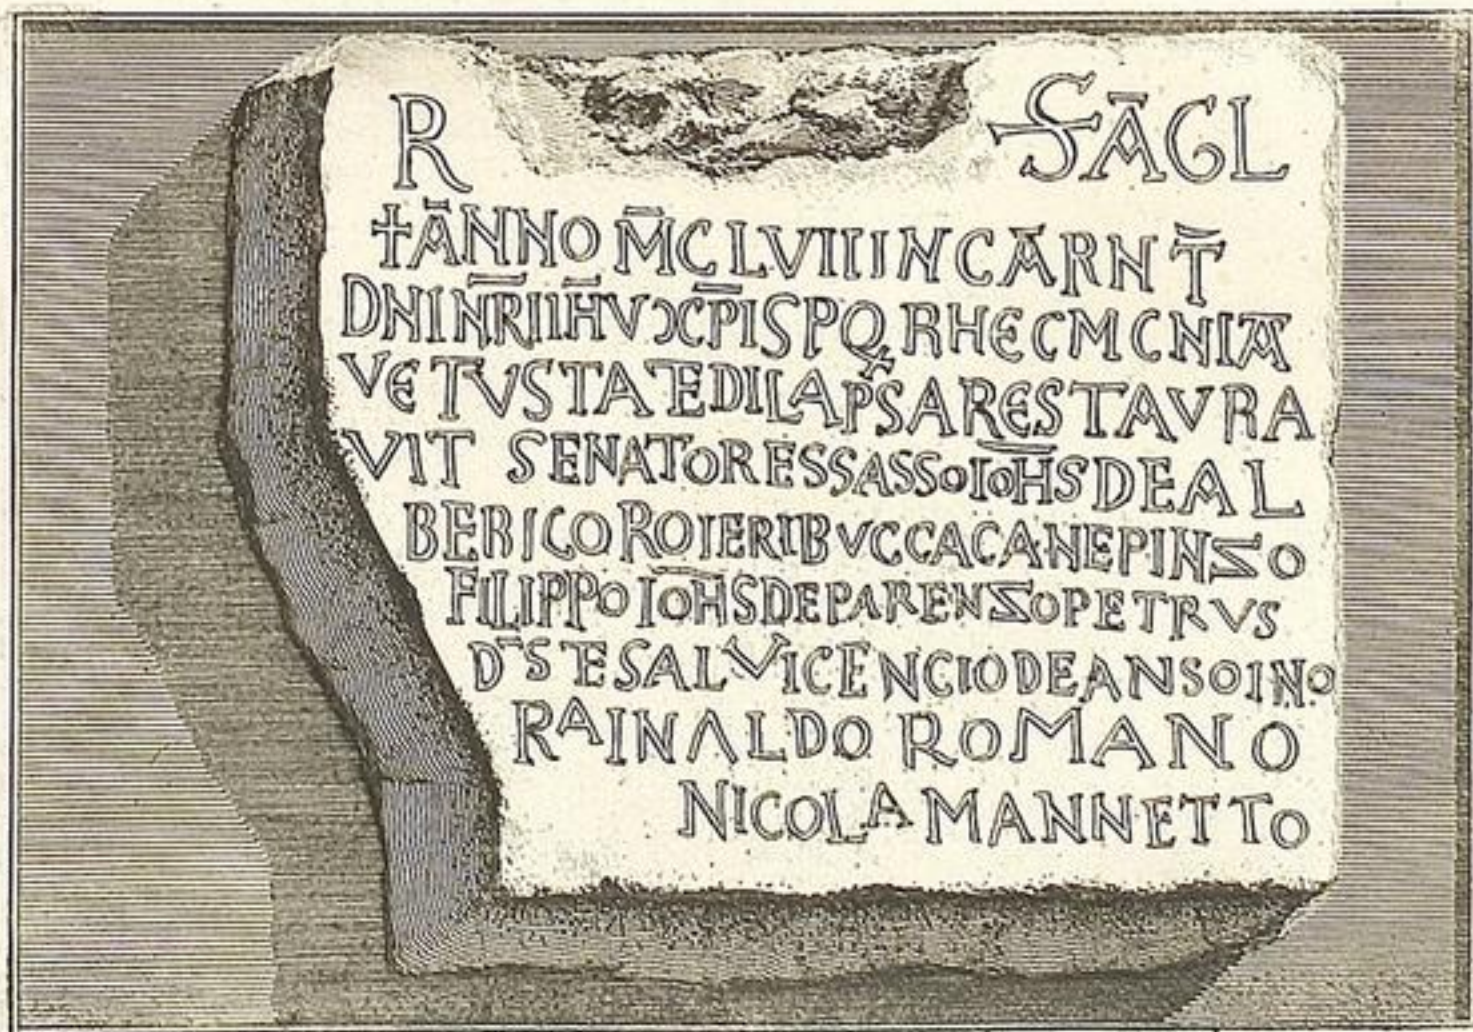 R SĀGL
†ĀNNO M̄CLVIII INCĀRNT̄
DNI N̄RI IH̄V XP̄I SPQR HEC MCNIA
VETVSTATE DILAPSA RESTAVRA
VIT SENATORES SASSO IOH̄S DE AL
BERICO ROIERI BVCCACANE PINZO
FILIPPO IOH̄S DE PARENZO PETRVS
D̄S TE SALVI CENCIO DE ANSOINO
RAINALDO ROMANO
NICOLA MANNETTO